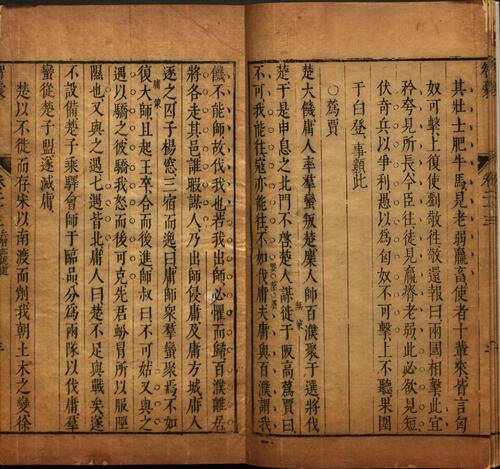 其壯士肥牛馬見老弱羸畜使者十輩來皆言匈
奴可擊上復使劉敬徃敬還報曰兩國相擊此宜
矜夸見所長今臣徃徒見羸瘠老弱此必欲見短
伏奇兵以爭利愚以為匈奴不可擊上不聽果圍
于白登事類此
〇蔿賈
楚大饑庸人率羣蠻叛楚麇人師百濮聚于選將伐
楚于是申息之北門不啓楚人謀徙于阪高蔿賈曰
不可我能往寇亦能往不如伐庸夫庸與百濮謂我
饑不能師故伐我也若我出師必懼而歸百濮離居
將各走其邑誰暇謀人乃出師侵庸及庸方城庸人
逐之囚子楊窓三宿而逸曰庸師衆羣蠻聚焉不如
復大師且起王卒合而後進師叔曰不可姑又與之
遇以驕之彼驕我怒而後可克先君蚡冒所以服陘
隰也又與之遇七遇皆北庸人曰楚不足與戰矣遂
不設備楚子乘驛會師于臨品分為兩隊以伐庸羣
蠻從楚子盟遂滅庸
楚以不徙而存宋以南渡而削我朝土木之變徐